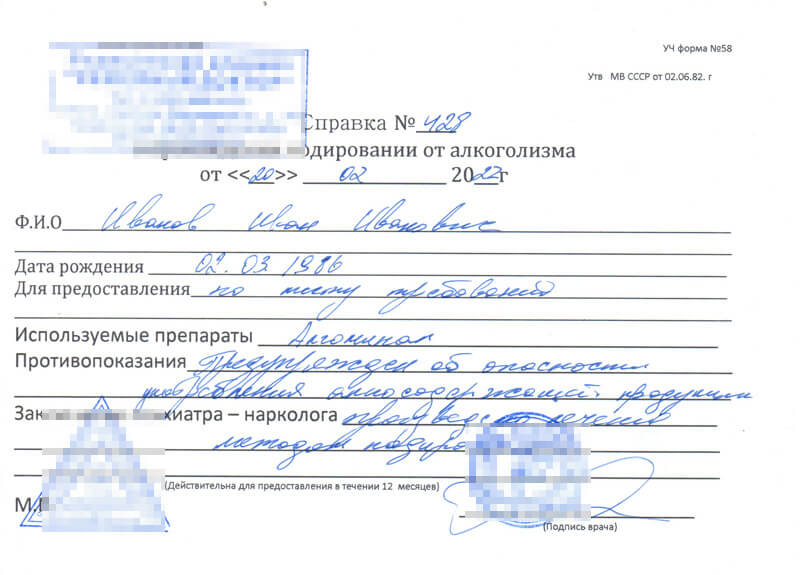 УЧ форма №58
Утв МВ СССР от 02.06.82. г
Справка № 428
одировании от алкоголизма
от <<20>> 02 2022г
Ф.И.О Иванов Иван Иванович
Дата рождения 02.03 1986
Для предоставления по месту требований
Используемые препараты
Противопоказания Предупрежден об опасности
употребления алкосодержащей продукции
Зак хиатра – нарколога произведено лечение
методом кодиро
(Действительна для предоставления в течении 12 месяцев)
М.П
(Подпись врача)